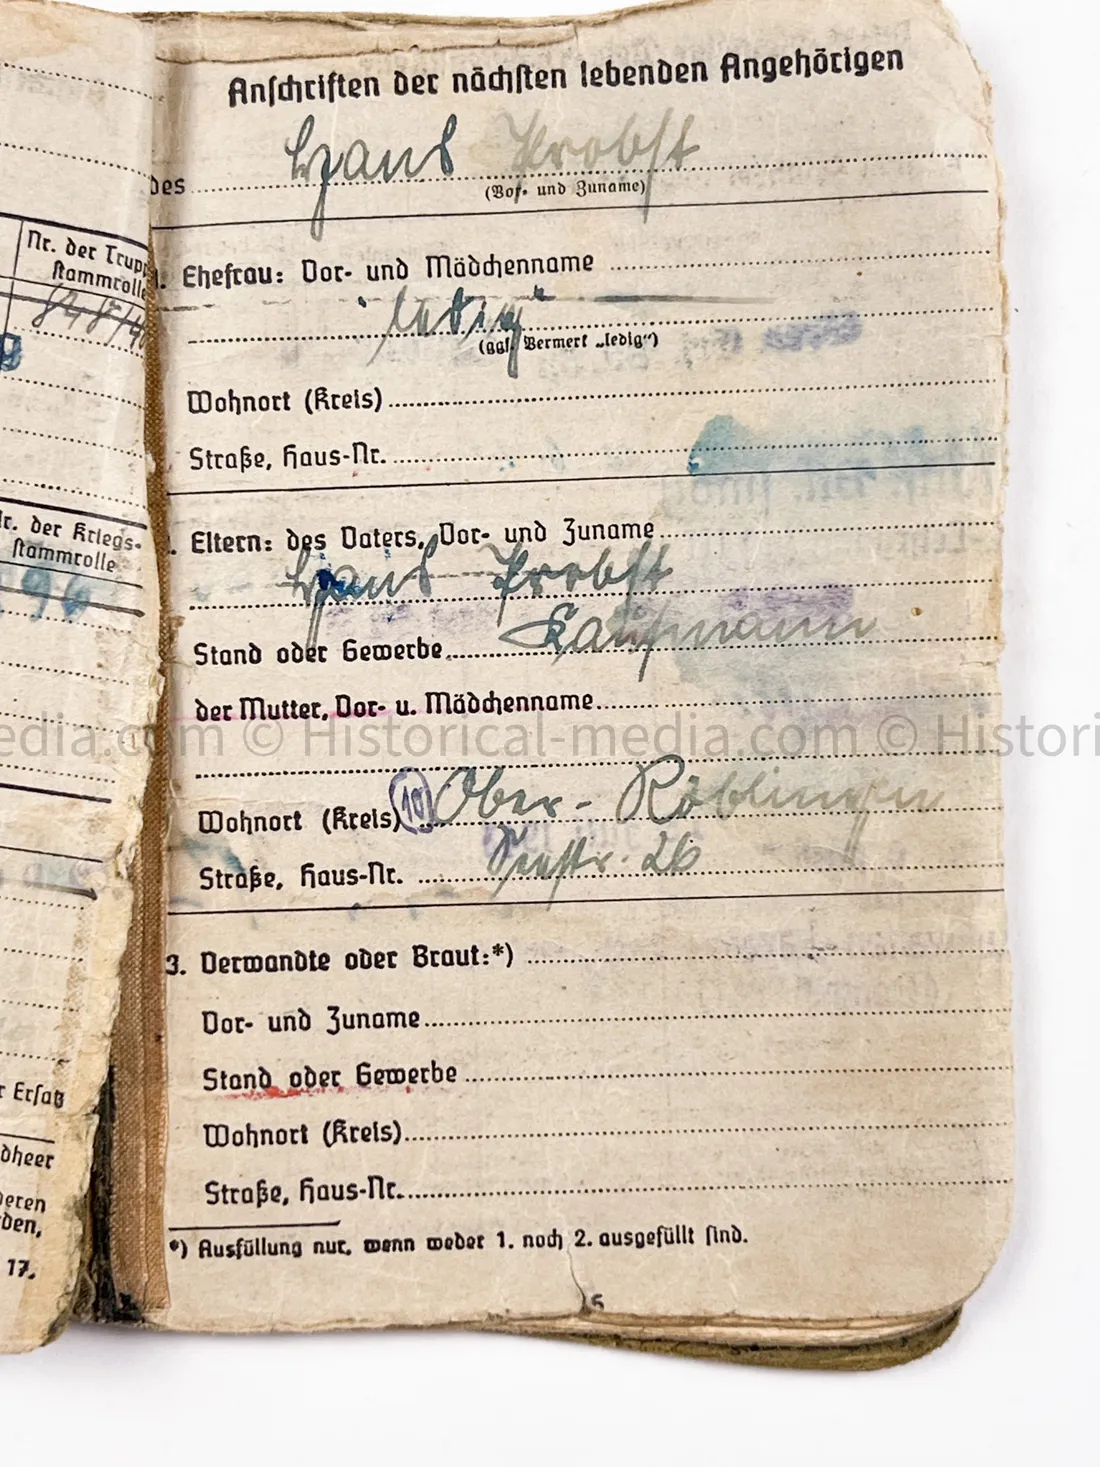 Anschriften der nächsten lebenden Angehörigen
des Hans Probst
(Vor- und Zuname)
1. Ehefrau: Vor- und Mädchenname
"ledig"
(ggf. Vermerk „ledig“)
Wohnort (Kreis)
Straße, Haus-Nr.
2. Eltern: des Vaters, Vor- und Zuname
Hans Probst
Stand oder Gewerbe Kaufmann
der Mutter, Vor- u. Mädchenname
Wohnort (Kreis) Ober-Röblingen
Straße, Haus-Nr. Seestr. 26
3. Verwandte oder Braut:*)
Vor- und Zuname
Stand oder Gewerbe
Wohnort (Kreis)
Straße, Haus-Nr.
*) Ausfüllung nur, wenn weder 1. noch 2. ausgefüllt sind.
5
Nr. der Trupp
stammrolle
der Kriegs-
stammrolle
96
Ersatz
dheer
deren
den,
17.
edia.com © Historical-media.com © Histori